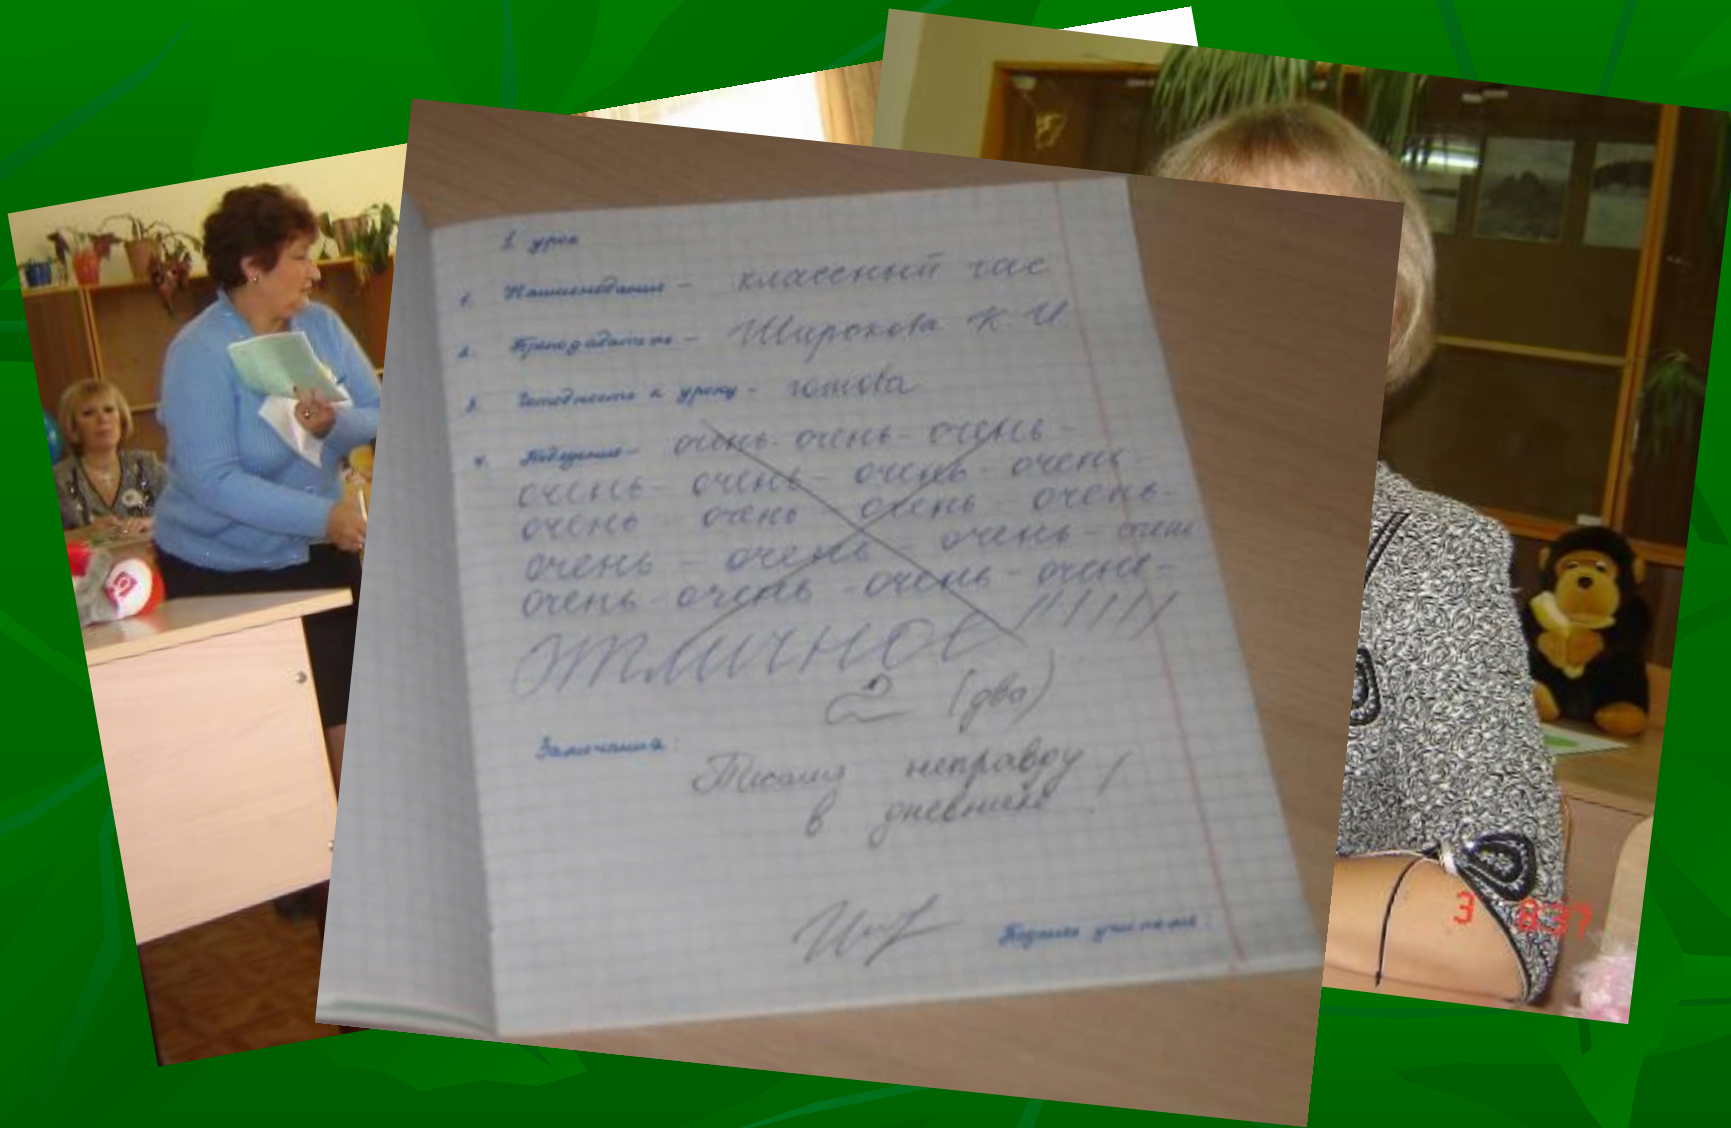 1. урок
1. Наименование – классный час
2. Преподаватель – Широкова К. И
3. Готовность к уроку – готова
4. Поведение – очень- очень- очень-
очень- очень- очень- очень-
очень очень очень очень-
очень – очень – очень – очень
очень- очень -очень- очень-
отличное!!!!!
2 (два)
Замечания:
Писала неправду
в дневнике!
Подпись учителя:
3 837